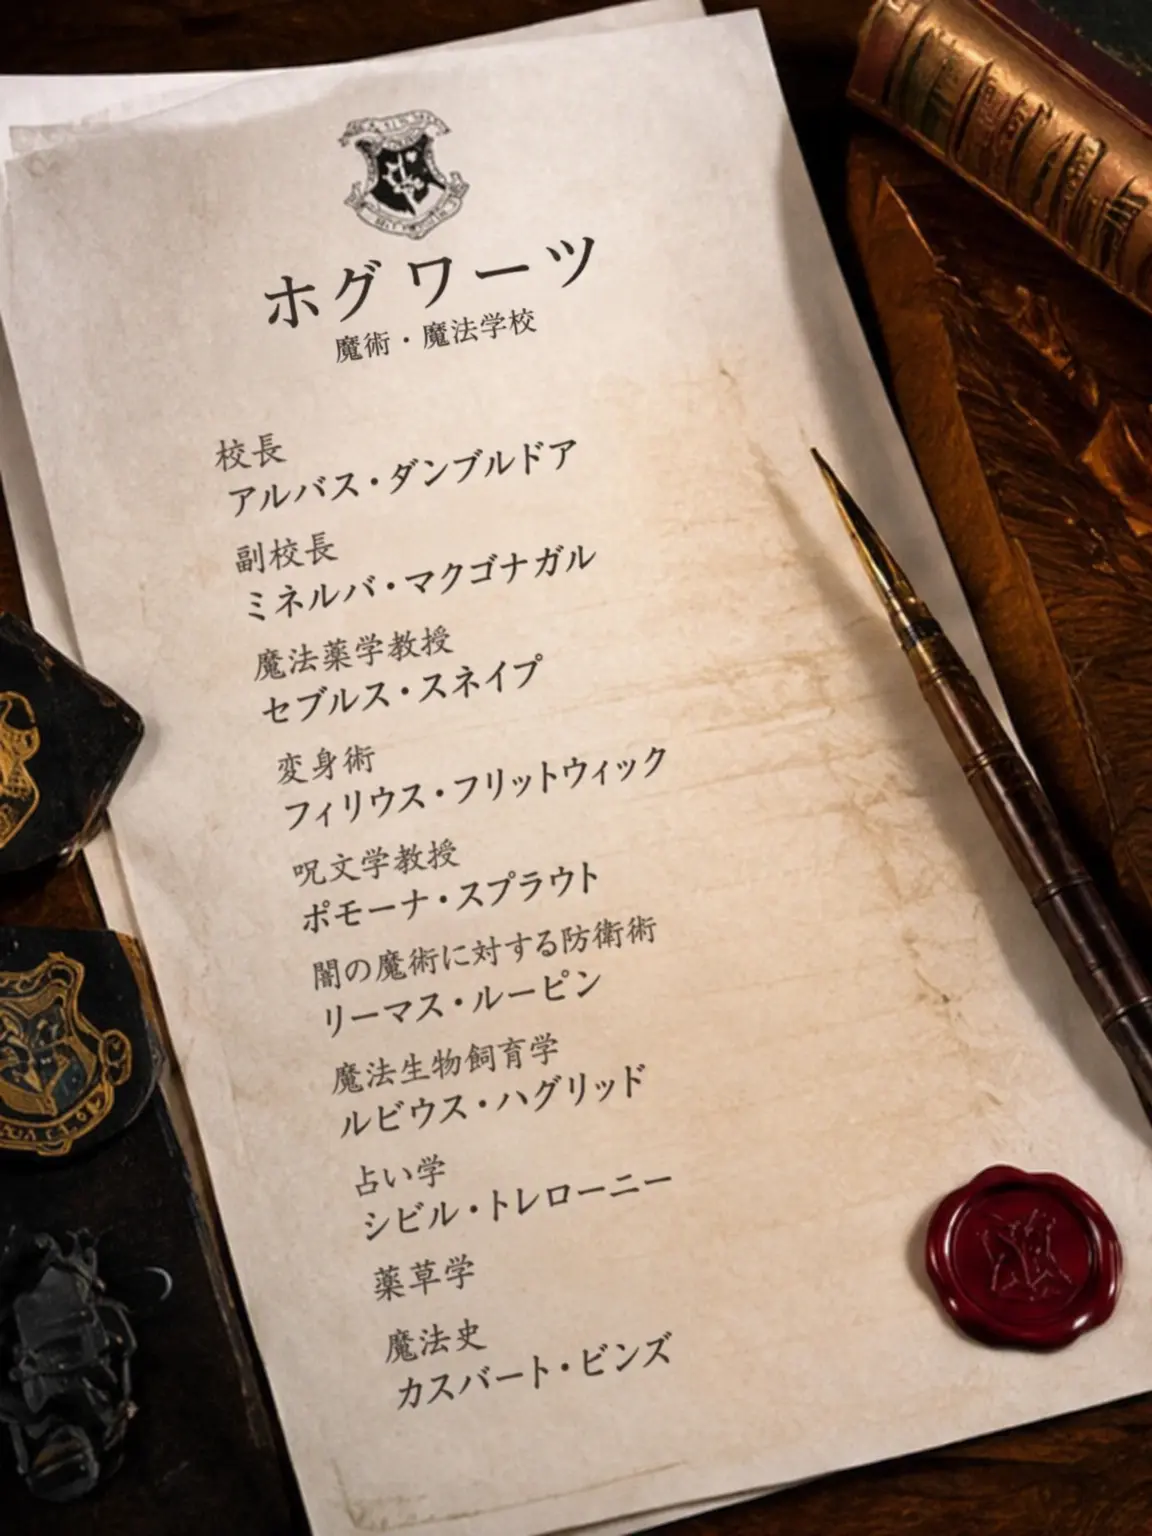 ホグワーツ
魔術・魔法学校
校長
アルバス・ダンブルドア
副校長
ミネルバ・マクゴナガル
魔法薬学教授
セブルス・スネイプ
変身術
フィリウス・フリットウィック
呪文学教授
ポモーナ・スプラウト
闇の魔術に対する防衛術
リーマス・ルーピン
魔法生物飼育学
ルビウス・ハグリッド
占い学
シビル・トレローニー
薬草学
魔法史
カスバート・ビンズ